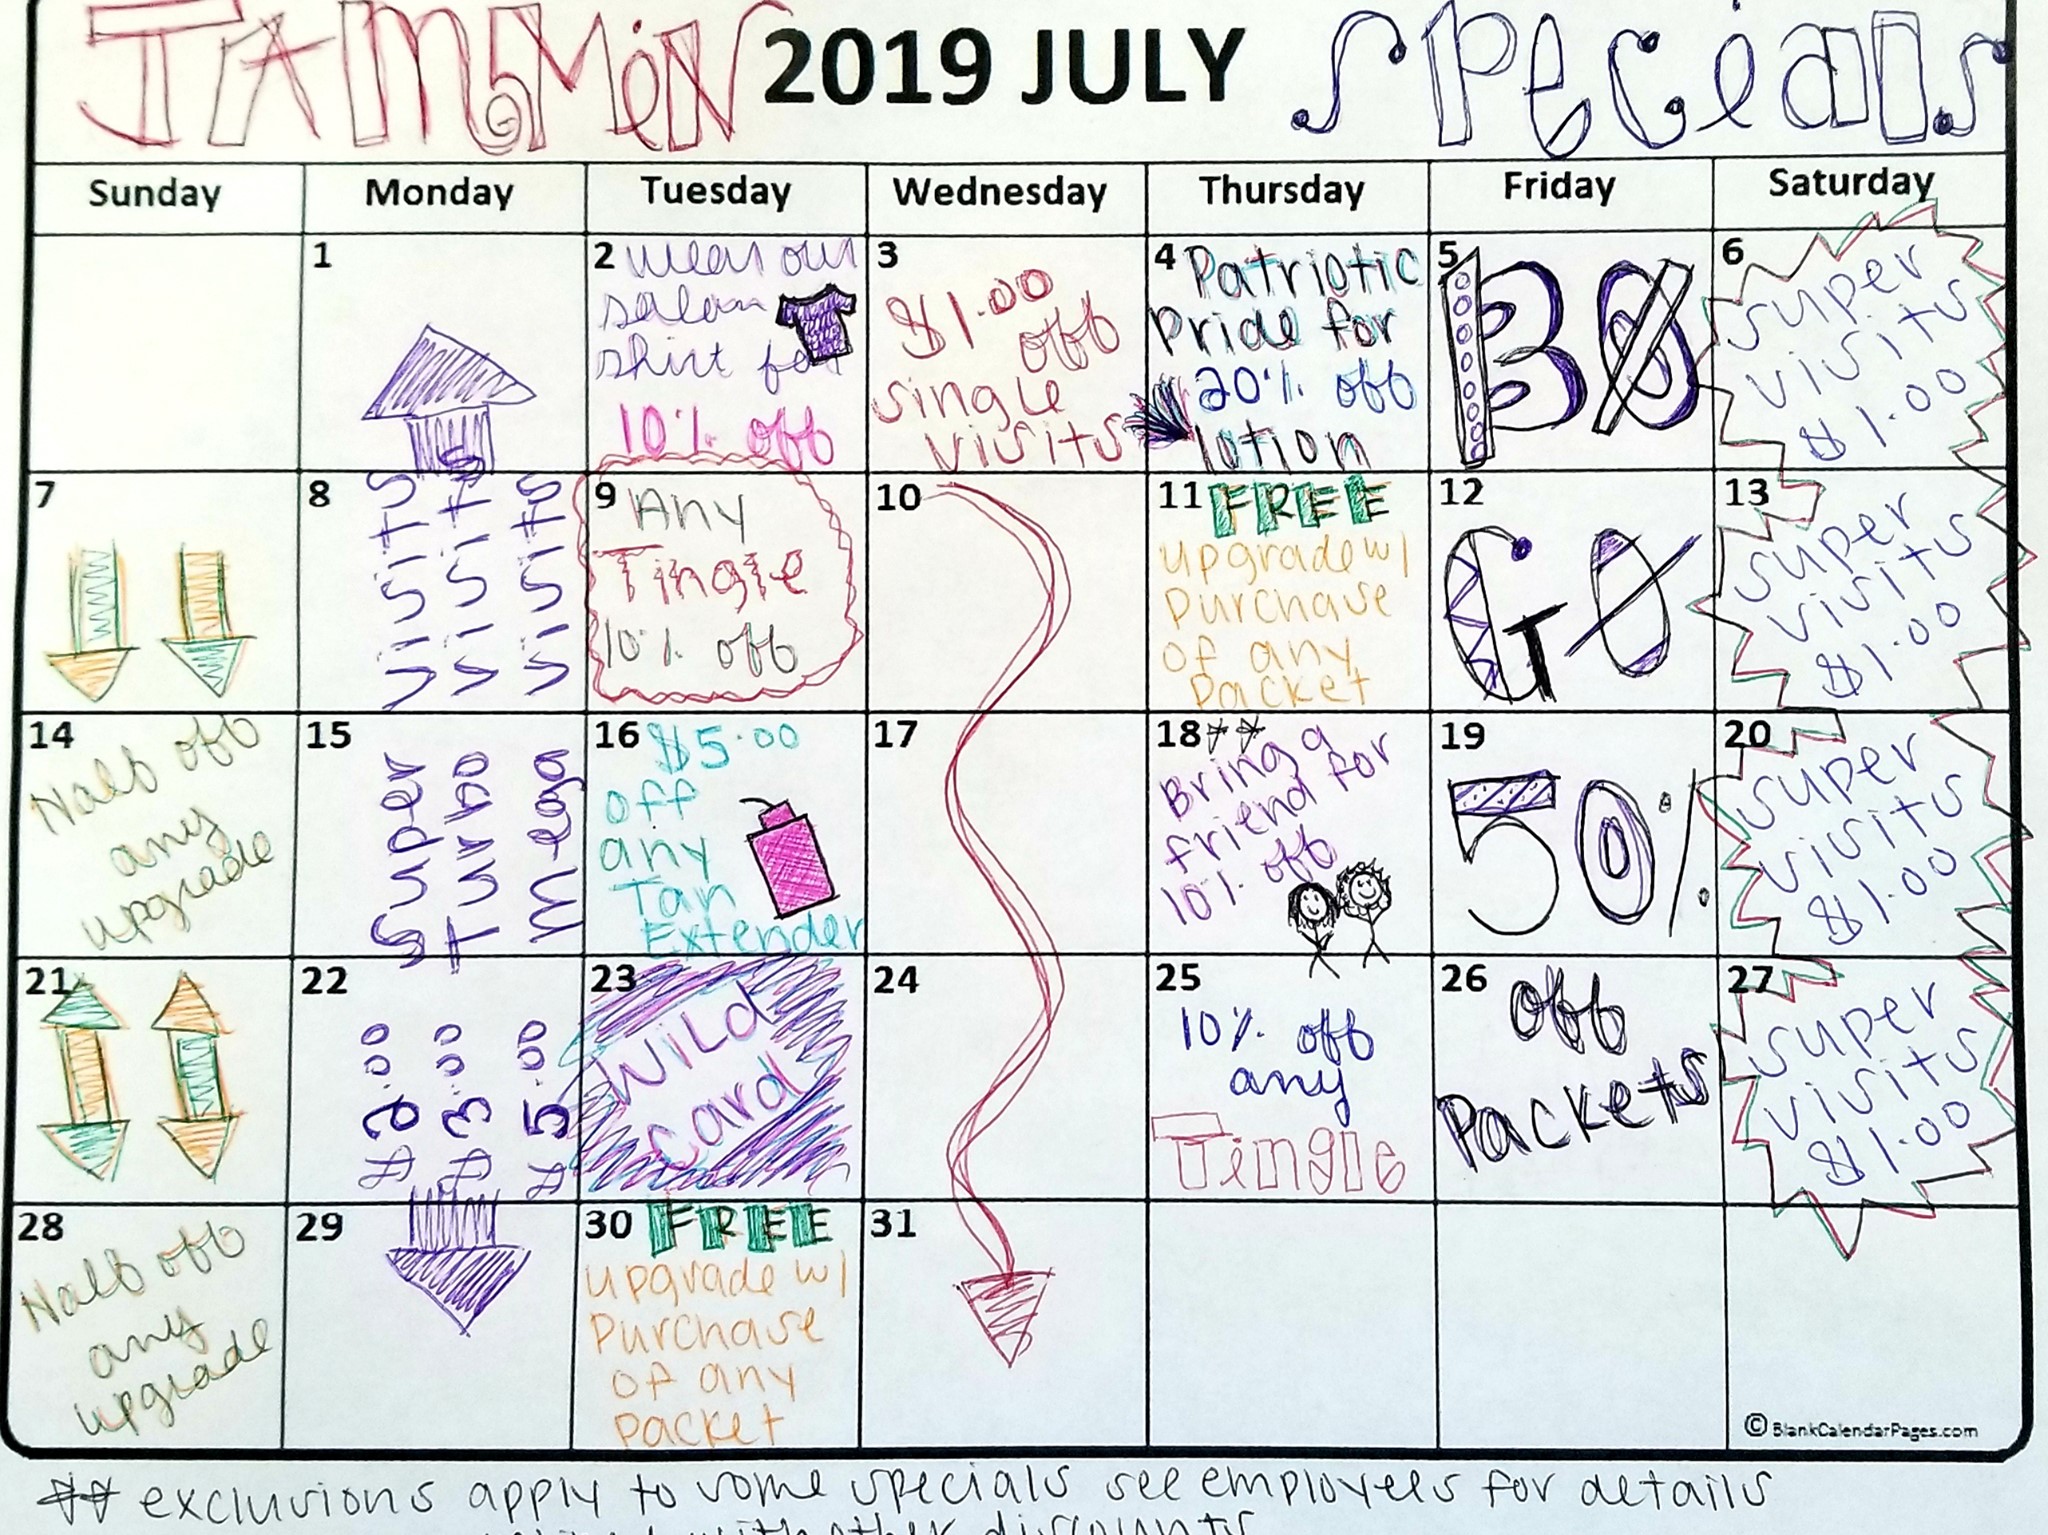 JAMMiN 2019 JULY SPeCials
Sunday Monday Tuesday Wednesday Thursday Friday Saturday
1
2 wear our
salon
shirt for
10% off
3
$1.00
off
single
visits
4 Patriotic
Pride for
20% off
lotion
5
BO
6
super
visits
$1.00
7
8
visits
visits
visits
9
Any
Tingle
10% off
10
11 FREE
upgrade w/
purchase
of any
packet
12
GO
13
super
visits
$1.00
14
Half off
any
upgrade
15
Super
Turbo
mega
16 $5.00
off
any
Tan
Extender
17
18**
Bring a
friend for
10% off
19
50%
20
super
visits
$1.00
21
22
$2.00
$3.00
$5.00
23
WILD
card
24
25
10% off
any
Tingle
26 off
Packets
27
super
visits
$1.00
28
Half off
any
upgrade
29
30 FREE
upgrade w/
purchase
of any
packet
31
© BlankCalendarPages.com
** exclusions apply to some specials see employees for details
with other discounts